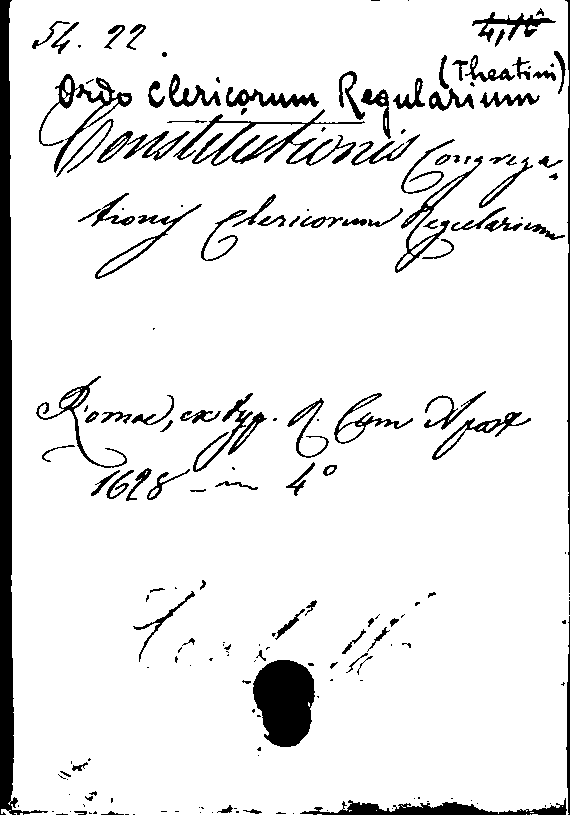 54. 22.
(Theatini)
Ordo Clericorum Regularium
Constitutionis Congrega-
tionis Clericorum Regularium
Romae, ex typ. R. Cam Apost
1628 - in 4°